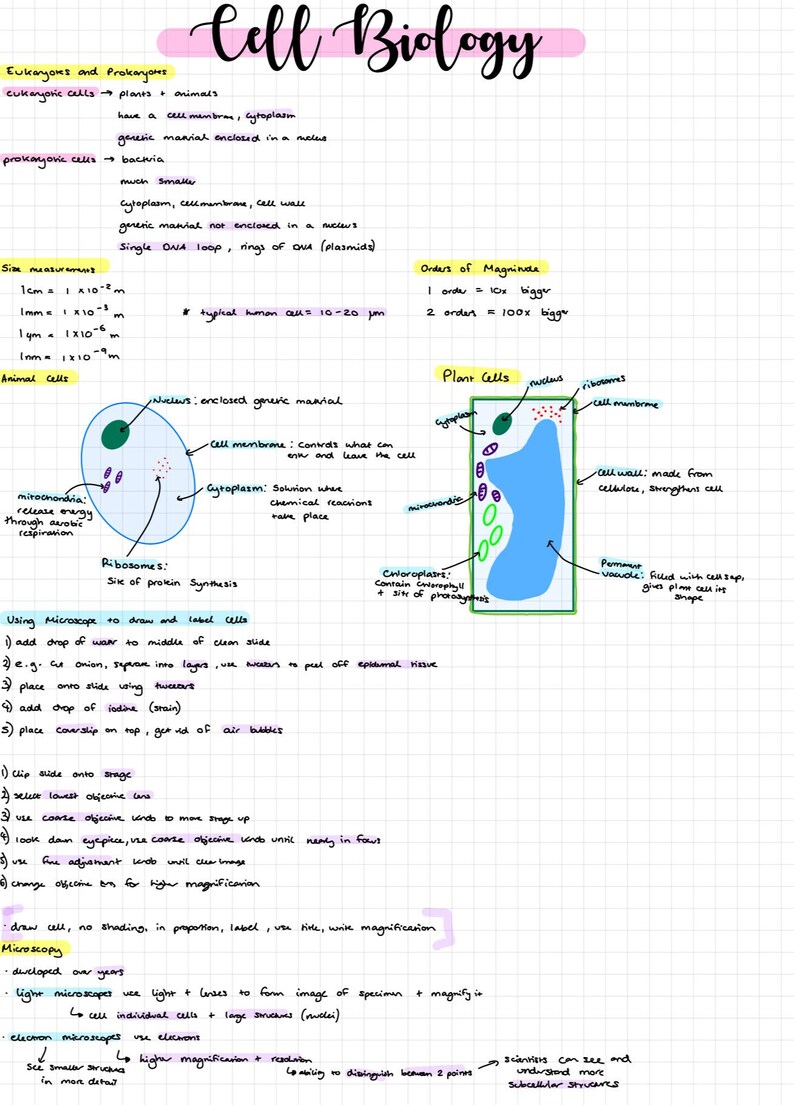 Cell Biology
Eukaryotes and Prokaryotes
eukaryotic cells → plants + animals
have a cell membrane, cytoplasm
genetic material enclosed in a nucleus
prokaryotic cells → bacteria
much smaller
cytoplasm, cell membrane, cell wall
genetic material not enclosed in a nucleus
single DNA loop, rings of DNA (plasmids)
Size measurements
1cm = 1 x10⁻² m
1mm = 1 x10⁻³ m
* typical human cell = 10-20 µm
1µm = 1x10⁻⁶ m
1nm = 1x10⁻⁹ m
Orders of Magnitude
1 order = 10x bigger
2 orders = 100x bigger
Animal Cells
Nucleus: enclosed genetic material
Cell membrane: Controls what can
enter and leave the cell
Cytoplasm: Solution where
chemical reactions
take place
mitochondria:
release energy
through aerobic
respiration
Ribosomes:
Site of protein synthesis
Plant Cells
nucleus
ribosomes
cell membrane
cytoplasm
cell wall: made from
cellulose, strengthens cell
mitochondria
Chloroplasts:
Contain chlorophyll
+ site of photosynthesis
Permanent
vacuole: filled with cell sap,
gives plant cell its
shape
Using Microscope to draw and label cells
1) add drop of water to middle of clean slide
2) e.g. cut onion, separate into layers, use tweezers to peel off epidermal tissue
3) place onto slide using tweezers
4) add drop of iodine (stain)
5) place coverslip on top, get rid of air bubbles
1) clip slide onto stage
2) select lowest objective lens
3) use coarse objective knob to move stage up
4) look down eyepiece, use coarse objective knob until nearly in focus
5) use fine adjustment knob until clear image
6) change objective lens for higher magnification
· draw cell, no shading, in proportion, label, use title, write magnification
Microscopy
· developed over years
· light microscopes use light + lenses to form image of specimen + magnify it
↳ cell individual cells + large structures (nuclei)
· electron microscopes use electrons
↳ higher magnification + resolution
see smaller structures
in more detail
↳ ability to distinguish between 2 points
→ scientists can see and
understand more
subcellular structures